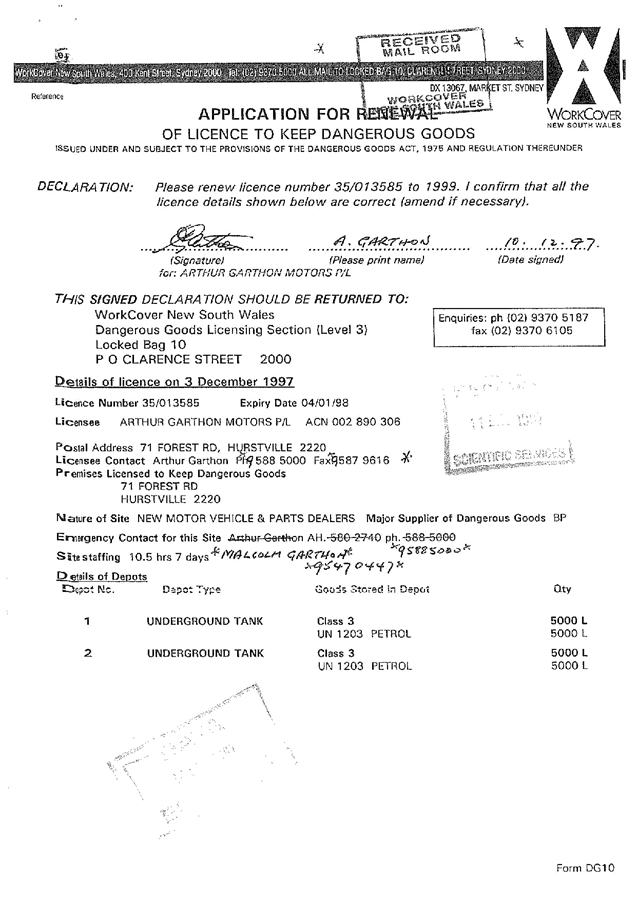 RECEIVED
MAIL ROOM
WORKCOVER
NEW SOUTH WALES
WorkCover New South Wales, 400 Kent Street, Sydney 2000 Tel: (02) 9370 5000 ALL MAIL TO LOCKED BAG 10, CLARENCE STREET, SYDNEY 2000
DX 13067, MARKET ST. SYDNEY
WORKCOVER
NEW SOUTH WALES
Reference
APPLICATION FOR RENEWAL
OF LICENCE TO KEEP DANGEROUS GOODS
ISSUED UNDER AND SUBJECT TO THE PROVISIONS OF THE DANGEROUS GOODS ACT, 1975 AND REGULATION THEREUNDER
DECLARATION: Please renew licence number 35/013585 to 1999. I confirm that all the
licence details shown below are correct (amend if necessary).
A. GARTHON 10. 12. 97.
(Signature) (Please print name) (Date signed)
for: ARTHUR GARTHON MOTORS P/L
THIS SIGNED DECLARATION SHOULD BE RETURNED TO:
WorkCover New South Wales
Dangerous Goods Licensing Section (Level 3)
Locked Bag 10
P O CLARENCE STREET 2000
Enquiries: ph (02) 9370 5187
fax (02) 9370 6105
Details of licence on 3 December 1997
Licence Number 35/013585 Expiry Date 04/01/98
Licensee ARTHUR GARTHON MOTORS P/L ACN 002 890 306
SCIENTIFIC SERVICES
Postal Address 71 FOREST RD, HURSTVILLE 2220
Licensee Contact Arthur Garthon Ph 9588 5000 Fax 9587 9616 *
Premises Licensed to Keep Dangerous Goods
71 FOREST RD
HURSTVILLE 2220
Nature of Site NEW MOTOR VEHICLE & PARTS DEALERS Major Supplier of Dangerous Goods BP
Emergency Contact for this Site Arthur Garthon AH. 580 2740 ph. 588 5000
Site staffing 10.5 hrs 7 days *MALCOLM GARTHON* *95885000*
*95470447*
Details of Depots
Depot No. Depot Type Goods Stored in Depot Qty
1 UNDERGROUND TANK Class 3 5000 L
UN 1203 PETROL 5000 L
2 UNDERGROUND TANK Class 3 5000 L
UN 1203 PETROL 5000 L
Form DG10